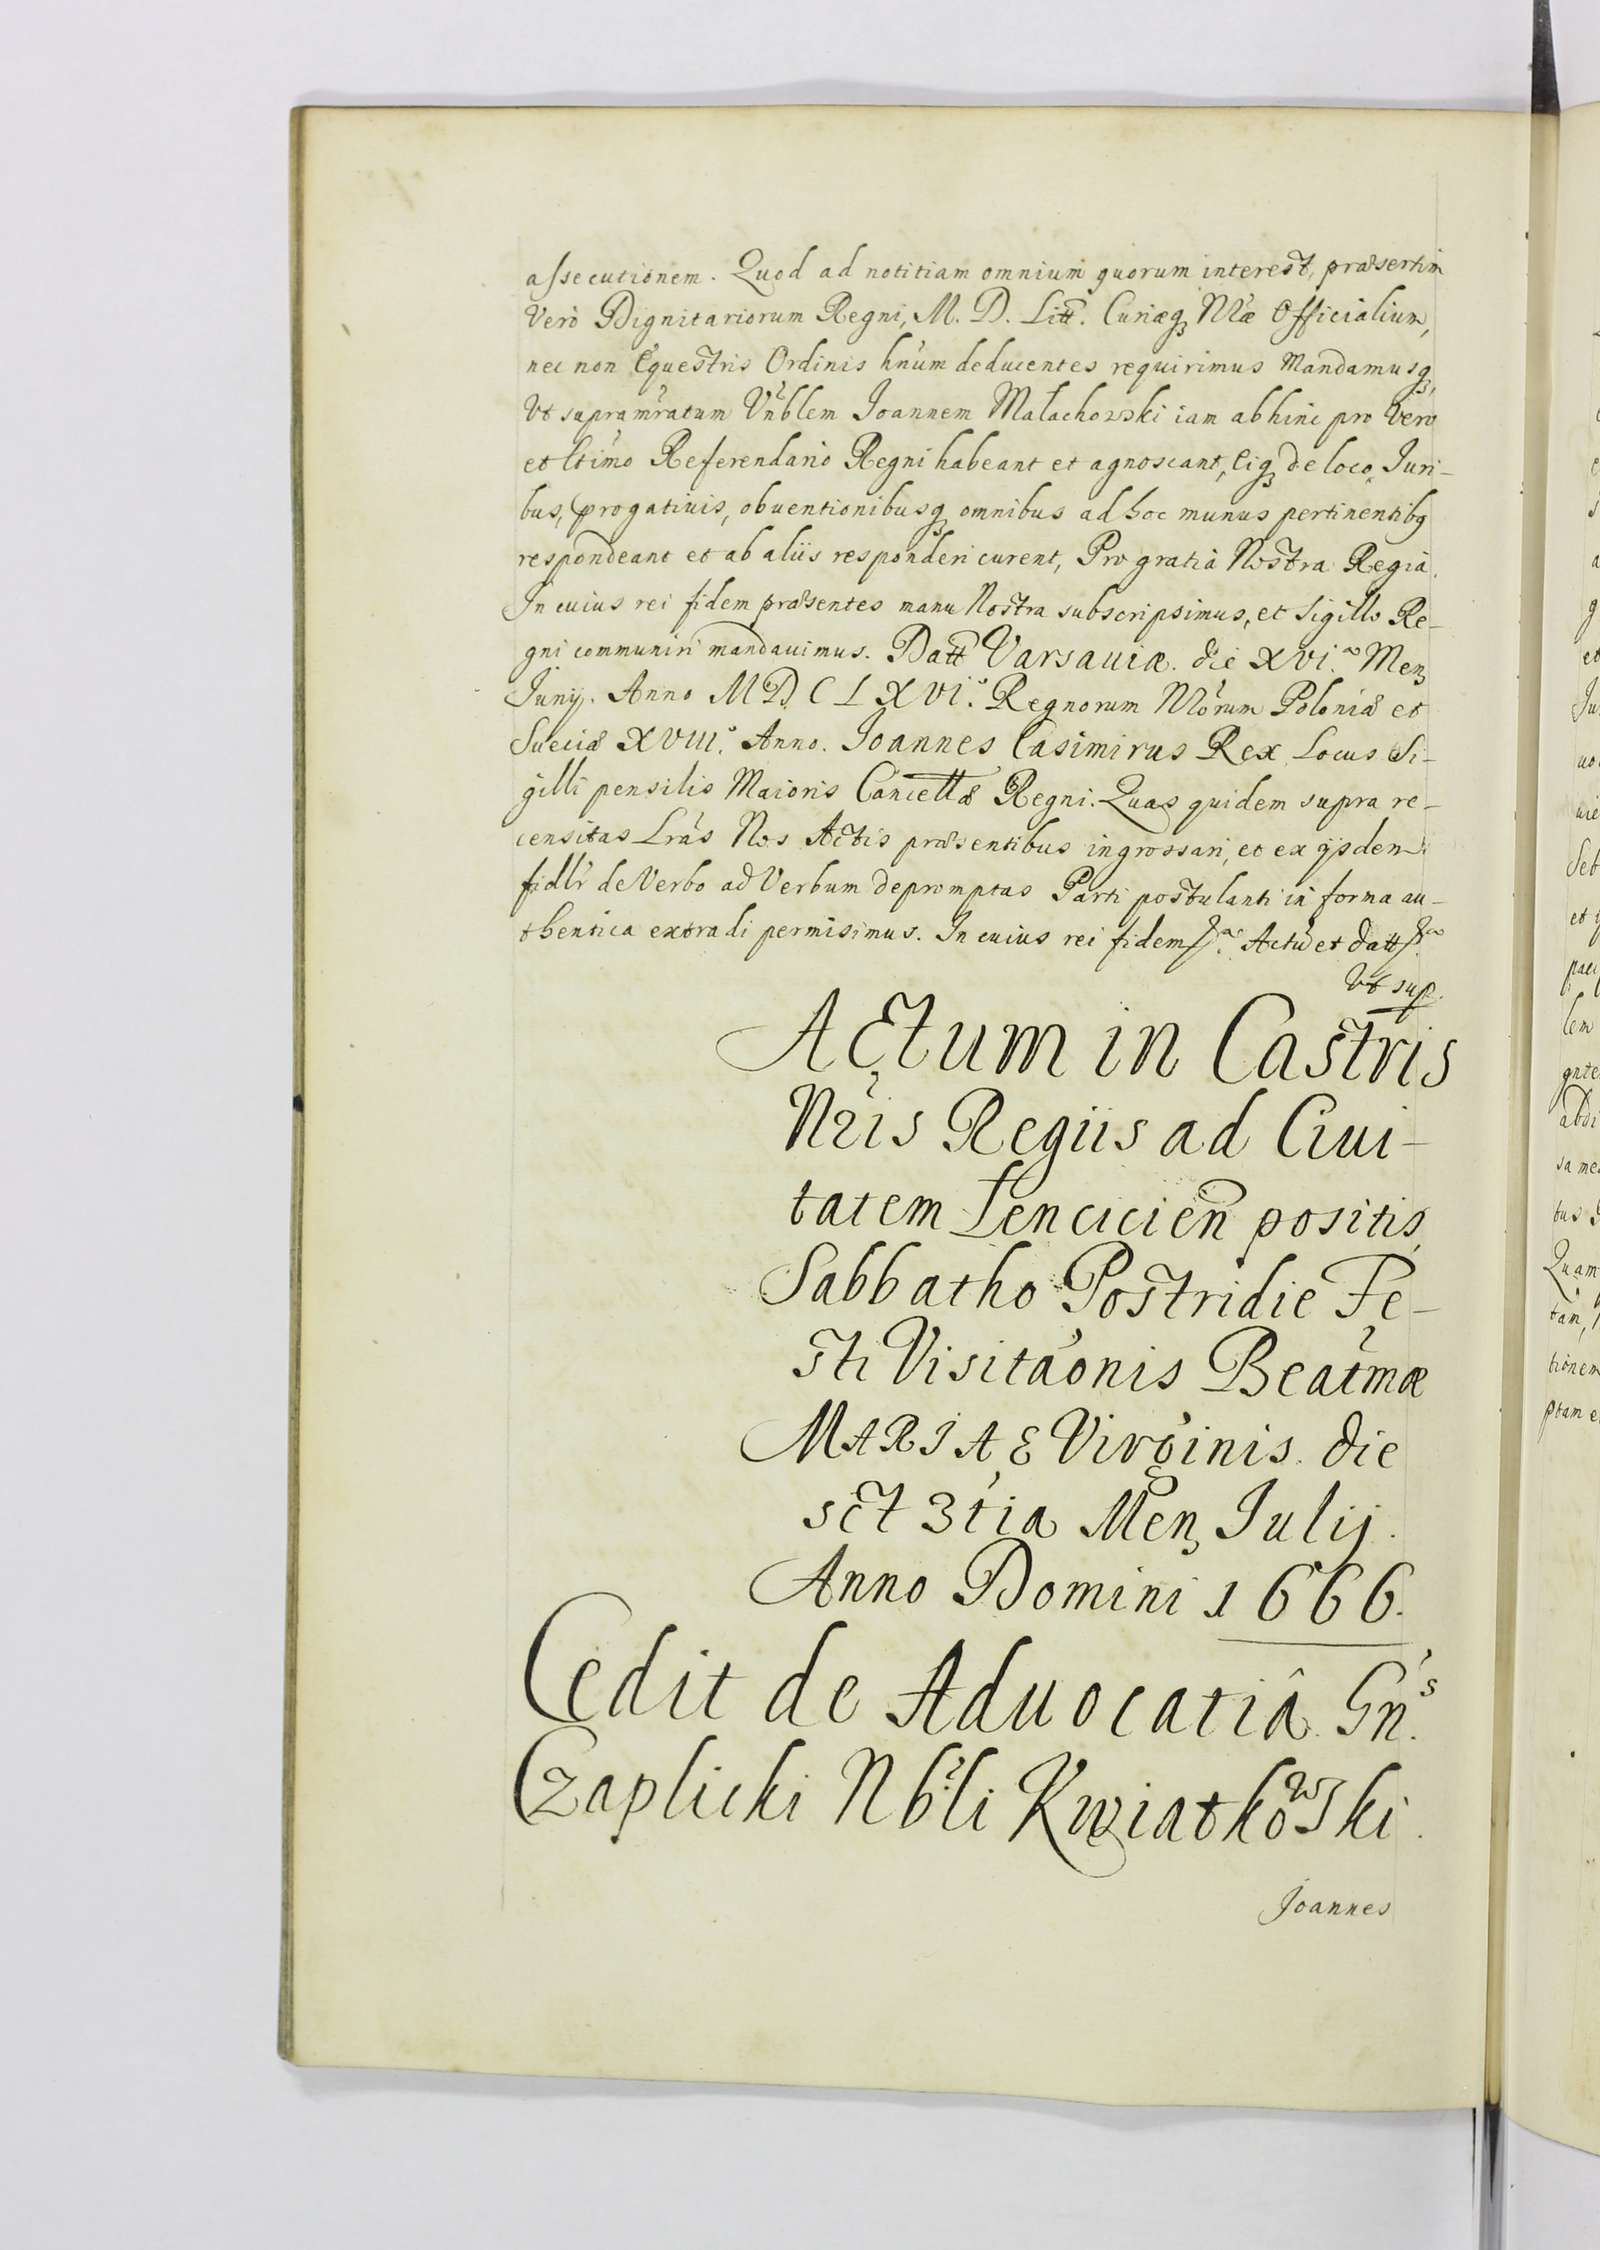 assecutionem. Quod ad notitiam omnium quorum interest, præsertim
Vero Dignitariorum Regni, M. D. Litt. Curiæq₃ Nræ Officialium,
nec non Equestris Ordinis hnum deducentes requirimus Mandamusq₃,
Vt supramratum Vnblem Joannem Malachowski iam abhinc pro Vero
et ltimo Referendario Regni habeant et agnoscant, Eiq₃ de loco, Juri-
bus, progatiuis, obuentionibusq₃ omnibus ad hoc munus pertinentibq
respondeant et ab aliis responderi curent, Pro gratia Nostra Regia.
In cuius rei fidem præsentes manu Nostra subscripsimus, et Sigillo Re-
gni communiri mandauimus. Datt Varsauiæ. die XVI.ª Men₃
Junij. Anno MDCLXVI.º Regnorum Nrorum Poloniæ et
Sueciæ XVIII.º Anno. Joannes Casimirus Rex Locus Si-
gilli pensilis Maioris Cancellæ Regni. Quas quidem supra re-
censitas Lras Nos Actis præsentibus ingrossari, et ex ijsdem
fidlr de Verbo ad Verbum depromptas Parti postulanti in forma au-
thentica extradi permisimus. In cuius rei fidem Actu et datt
Vt sup.
Actum in Castris
Nris Regiis ad Ciui-
tatem Lencicien positis,
Sabbatho Postridie Fe-
sti Visitaonis Beatmæ
MARIAE Virginis. die
sct 3tia Men₃ Julij.
Anno Domini 1666.
Cedit de Aduocatiâ Gn.s
Czaplicki Nbli Kwiatkowski.
Joannes